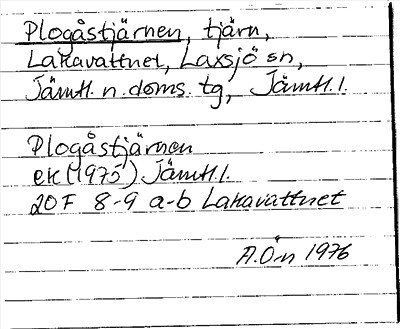 Plogåstjärnen, tjärn,
Lakavattnet, Laxsjö sn,
Jämtl. n. doms. tg, Jämtl. l.
Plogåstjärnen
ek (1975) Jämtl. l.
20F 8-9 a-b Lakavattnet
A. Ön 1976